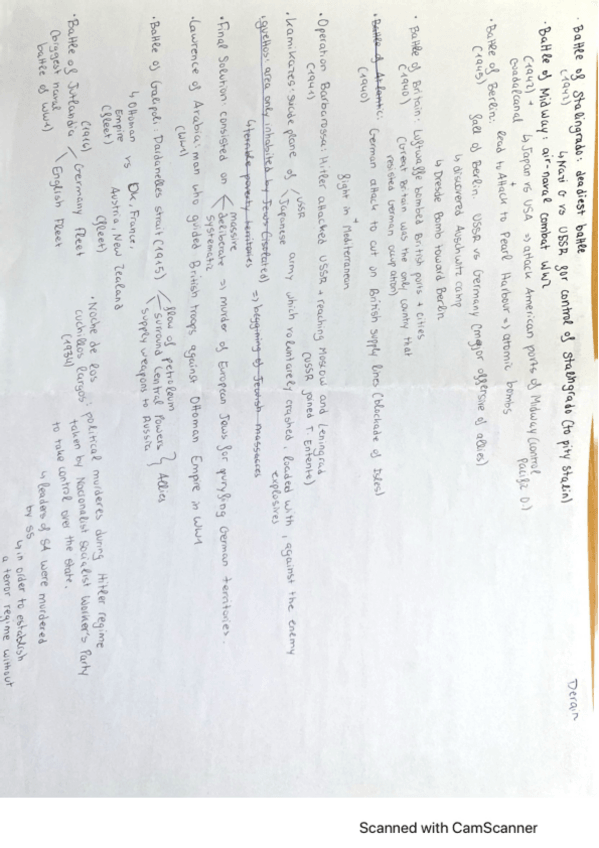 · Battle of Stalingrado: deadiest battle
(1942) ↳ Nazi G vs USSR for control of Stalingrado (to pity Stalin)
· Battle of Midway: air-naval combat WW2
(1942) + ↳ Japan vs USA => attack American ports of Midway (control
(Guadalcanal Pacific O.)
lead to Attack to Pearl Harbour => atomic bombs
· Battle of Berlin: fall of Berlin. USSR vs Germany (major offensive of allies)
(1945) ↳ discovered Auschwitz camp
↳ Dresde Bomb toward Berlin
· Battle of Britain: Luftwaffe bombed British ports + cities
(1940) (Great Britain was the only country that
resisted German ocupation)
· Battle of Atlantic: German attack to cut on British supply lines (blockade of Isles)
(1940) fight in Mediterranean
· Operation Barbarossa: Hitler attacked USSR + reaching Moscow and Leningrad
(1941) USSR (USSR joined T. Entente)
· Kamikazes: suicide plane of Japanese army which voluntarely crashed, loaded with, against the enemy
explosives
· guettos: area only inhabited by Jews (isolated) => beggining of Jewish massacres
↳ terrible poverty territories
· Final Solution: consisted on massive
deliberate => murder of European Jews for puryfing German territories.
systematic
· Lawrence of Arabia: man who guided British troops against Ottoman Empire in WW1
(WW1)
· Battle of Galipoli: Dardanelles strait (1915) flow of petroleum
surround Central Powers } Allies
supply weapons to Russia
↳ Ottoman vs UK, France,
Empire Austria, New Zealand
(fleet) (fleet)
· Battle of Jutlandia (1916) Germany Fleet
(biggest naval English Fleet
battle of WW1)
· Noche de los
cuchillos largos: political murderes during Hitler regime
(1934) taken by Nacionalist Socialist Worker's Party
to take control over the state.
↳ leaders of SA were murdered
by SS
↳ in order to establish
a terror regime without
Derain
Scanned with CamScanner